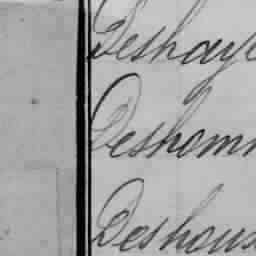 Deshaye
Deshomm
Deshous